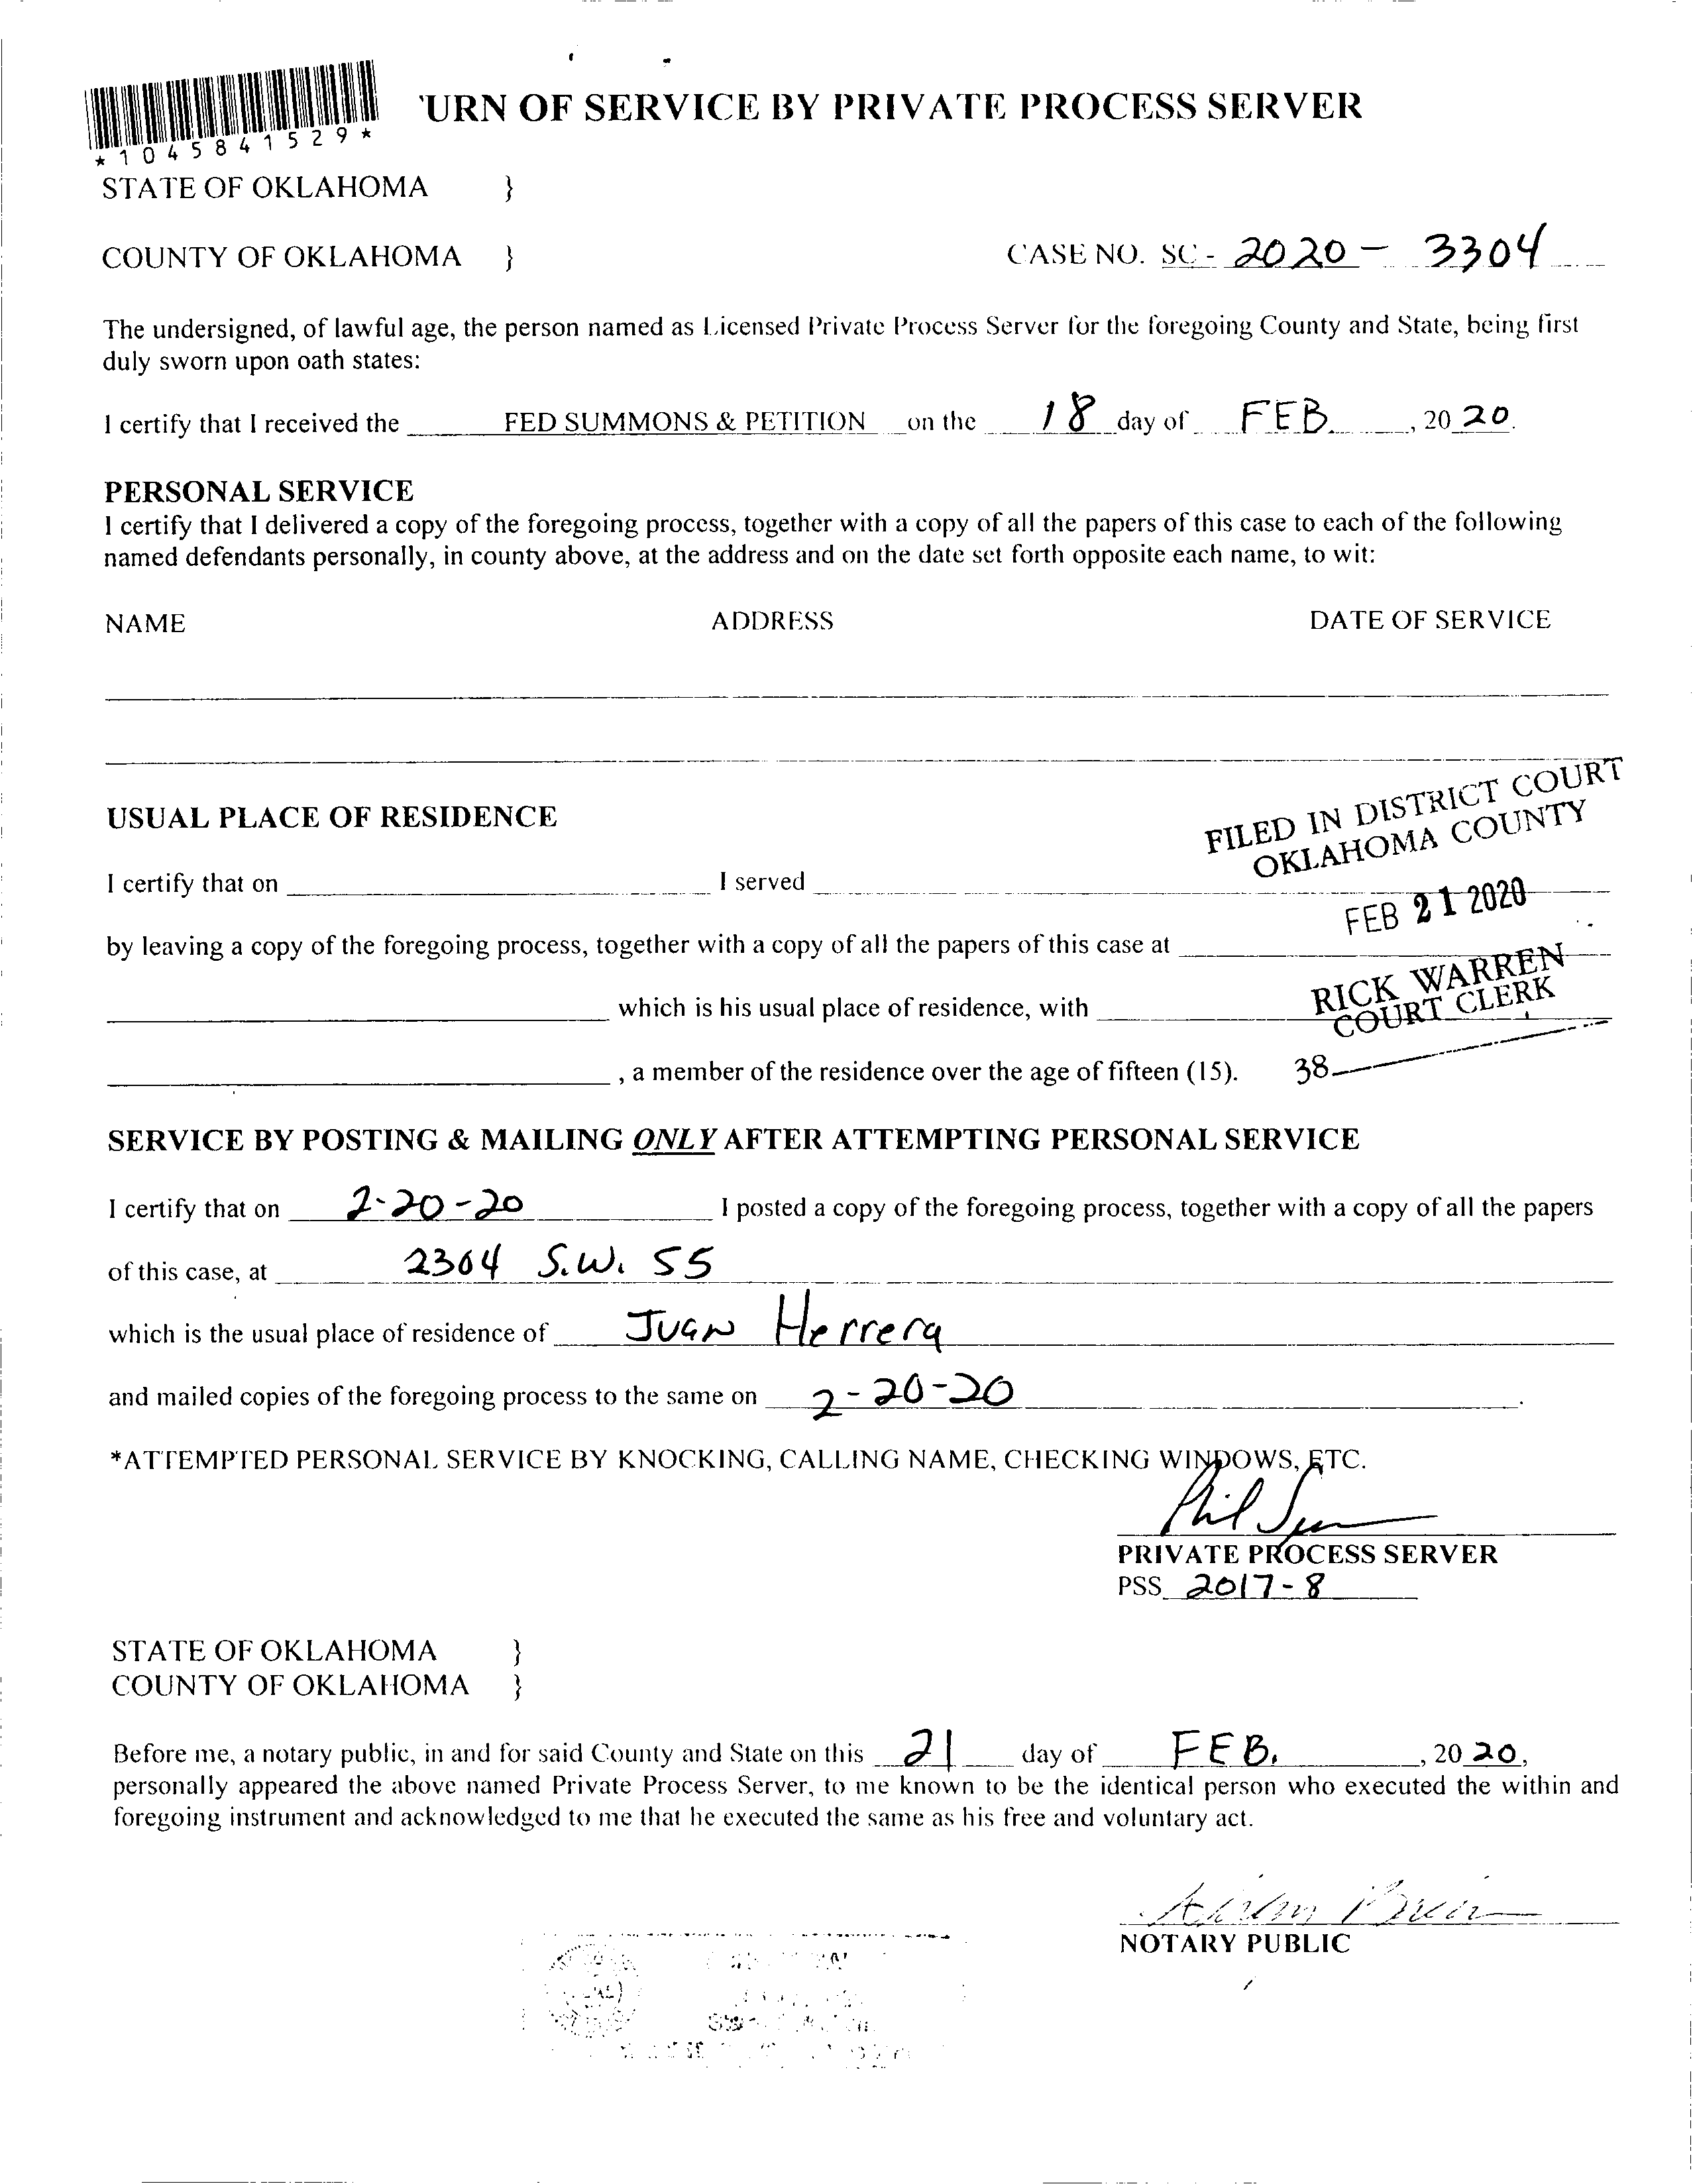 'URN OF SERVICE BY PRIVATE PROCESS SERVER
*1045841529*
STATE OF OKLAHOMA }
COUNTY OF OKLAHOMA } CASE NO. SC - 2020 - 3304
The undersigned, of lawful age, the person named as Licensed Private Process Server for the foregoing County and State, being first
duly sworn upon oath states:
I certify that I received the FED SUMMONS & PETITION on the 18 day of FEB. , 20 20.
PERSONAL SERVICE
I certify that I delivered a copy of the foregoing process, together with a copy of all the papers of this case to each of the following
named defendants personally, in county above, at the address and on the date set forth opposite each name, to wit:
NAME ADDRESS DATE OF SERVICE
FILED IN DISTRICT COURT
OKLAHOMA COUNTY
FEB 21 2020
RICK WARREN
COURT CLERK
38
USUAL PLACE OF RESIDENCE
I certify that on I served
by leaving a copy of the foregoing process, together with a copy of all the papers of this case at
which is his usual place of residence, with
, a member of the residence over the age of fifteen (15).
SERVICE BY POSTING & MAILING ONLY AFTER ATTEMPTING PERSONAL SERVICE
I certify that on 2-20-20 I posted a copy of the foregoing process, together with a copy of all the papers
of this case, at 2304 S.W. 55
which is the usual place of residence of Juan Herrera
and mailed copies of the foregoing process to the same on 2-20-20.
*ATTEMPTED PERSONAL SERVICE BY KNOCKING, CALLING NAME, CHECKING WINDOWS, ETC.
Phil
PRIVATE PROCESS SERVER
PSS 2017-8
STATE OF OKLAHOMA }
COUNTY OF OKLAHOMA }
Before me, a notary public, in and for said County and State on this 21 day of FEB. , 20 20,
personally appeared the above named Private Process Server, to me known to be the identical person who executed the within and
foregoing instrument and acknowledged to me that he executed the same as his free and voluntary act.
NOTARY PUBLIC